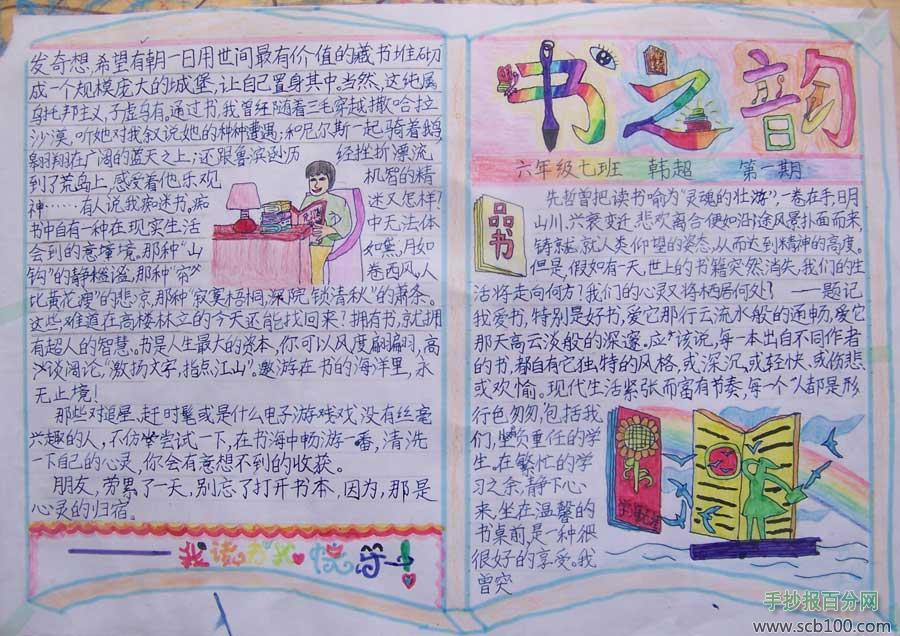 书之韵
六年级七班 韩超 第一期
品书
先哲曾把读书喻为“灵魂的壮游”,一卷在手,明
山川,兴衰变迁,悲欢离合便如沿途风景扑面而来,
铸就人类仰望的姿态,从而达到精神的高度。
但是,假如有一天,世上的书籍突然消失,我们的生
活将走向何方?我们的心灵又将栖居何处? ——题记
我爱书,特别是好书,爱它那行云流水般的通畅,爱它
那天高云淡般的深邃。应该说,每一本出自不同作者
的书,都自有它独特的风格,或深沉,或轻快、或伤悲
或欢愉。现代生活紧张而富有节奏,每一个人都是形
行色匆匆,包括我
们,坐负重任的学
生。在繁忙的学
习之余,静下心
来,坐在温馨的
书桌前,是一种很
很好的享受。我
曾突
发奇想,希望有朝一日用世间最有价值的藏书堆砌
成一个规模庞大的城堡,让自己置身其中。当然,这纯属
乌托邦主义,子虚乌有。通过书,我曾经随着三毛穿越撒哈拉
沙漠,听她对我叙说她的种种遭遇;和尼尔斯一起骑着鹅,
翱翔在广阔的蓝天之上;还跟鲁滨逊历 经挫折漂流
到了荒岛上,感受着他乐观 机智的精
神……有人说我痴迷书。痴 迷又怎样?
书中自有一种在现实生活 中无法体
会到的意境。那种“山 如黛,月如
钩”的静谧,那种“帘 卷西风,人
比黄花瘦”的悲凉,那种“寂寞梧桐,深院,锁清秋”的萧条。
这些难道在高楼林立的今天还能找回来?拥有书,就拥
有超人的智慧。书是人生最大的资本,你可以风度翩翩,高
谈阔论,“激扬文字,指点江山”。遨游在书的海洋里,永
无止境!
那些对追星、赶时髦或是什么电子游戏戏没有丝毫
兴趣的人,不仿尝试一下,在书海中畅游一番,清洗
一下自己的心灵,你会有意想不到的收获。
朋友,劳累了一天,别忘了打开书本,因为,那是
心灵的归宿。
我读书我快乐
手抄报百分网
www.scb100.com